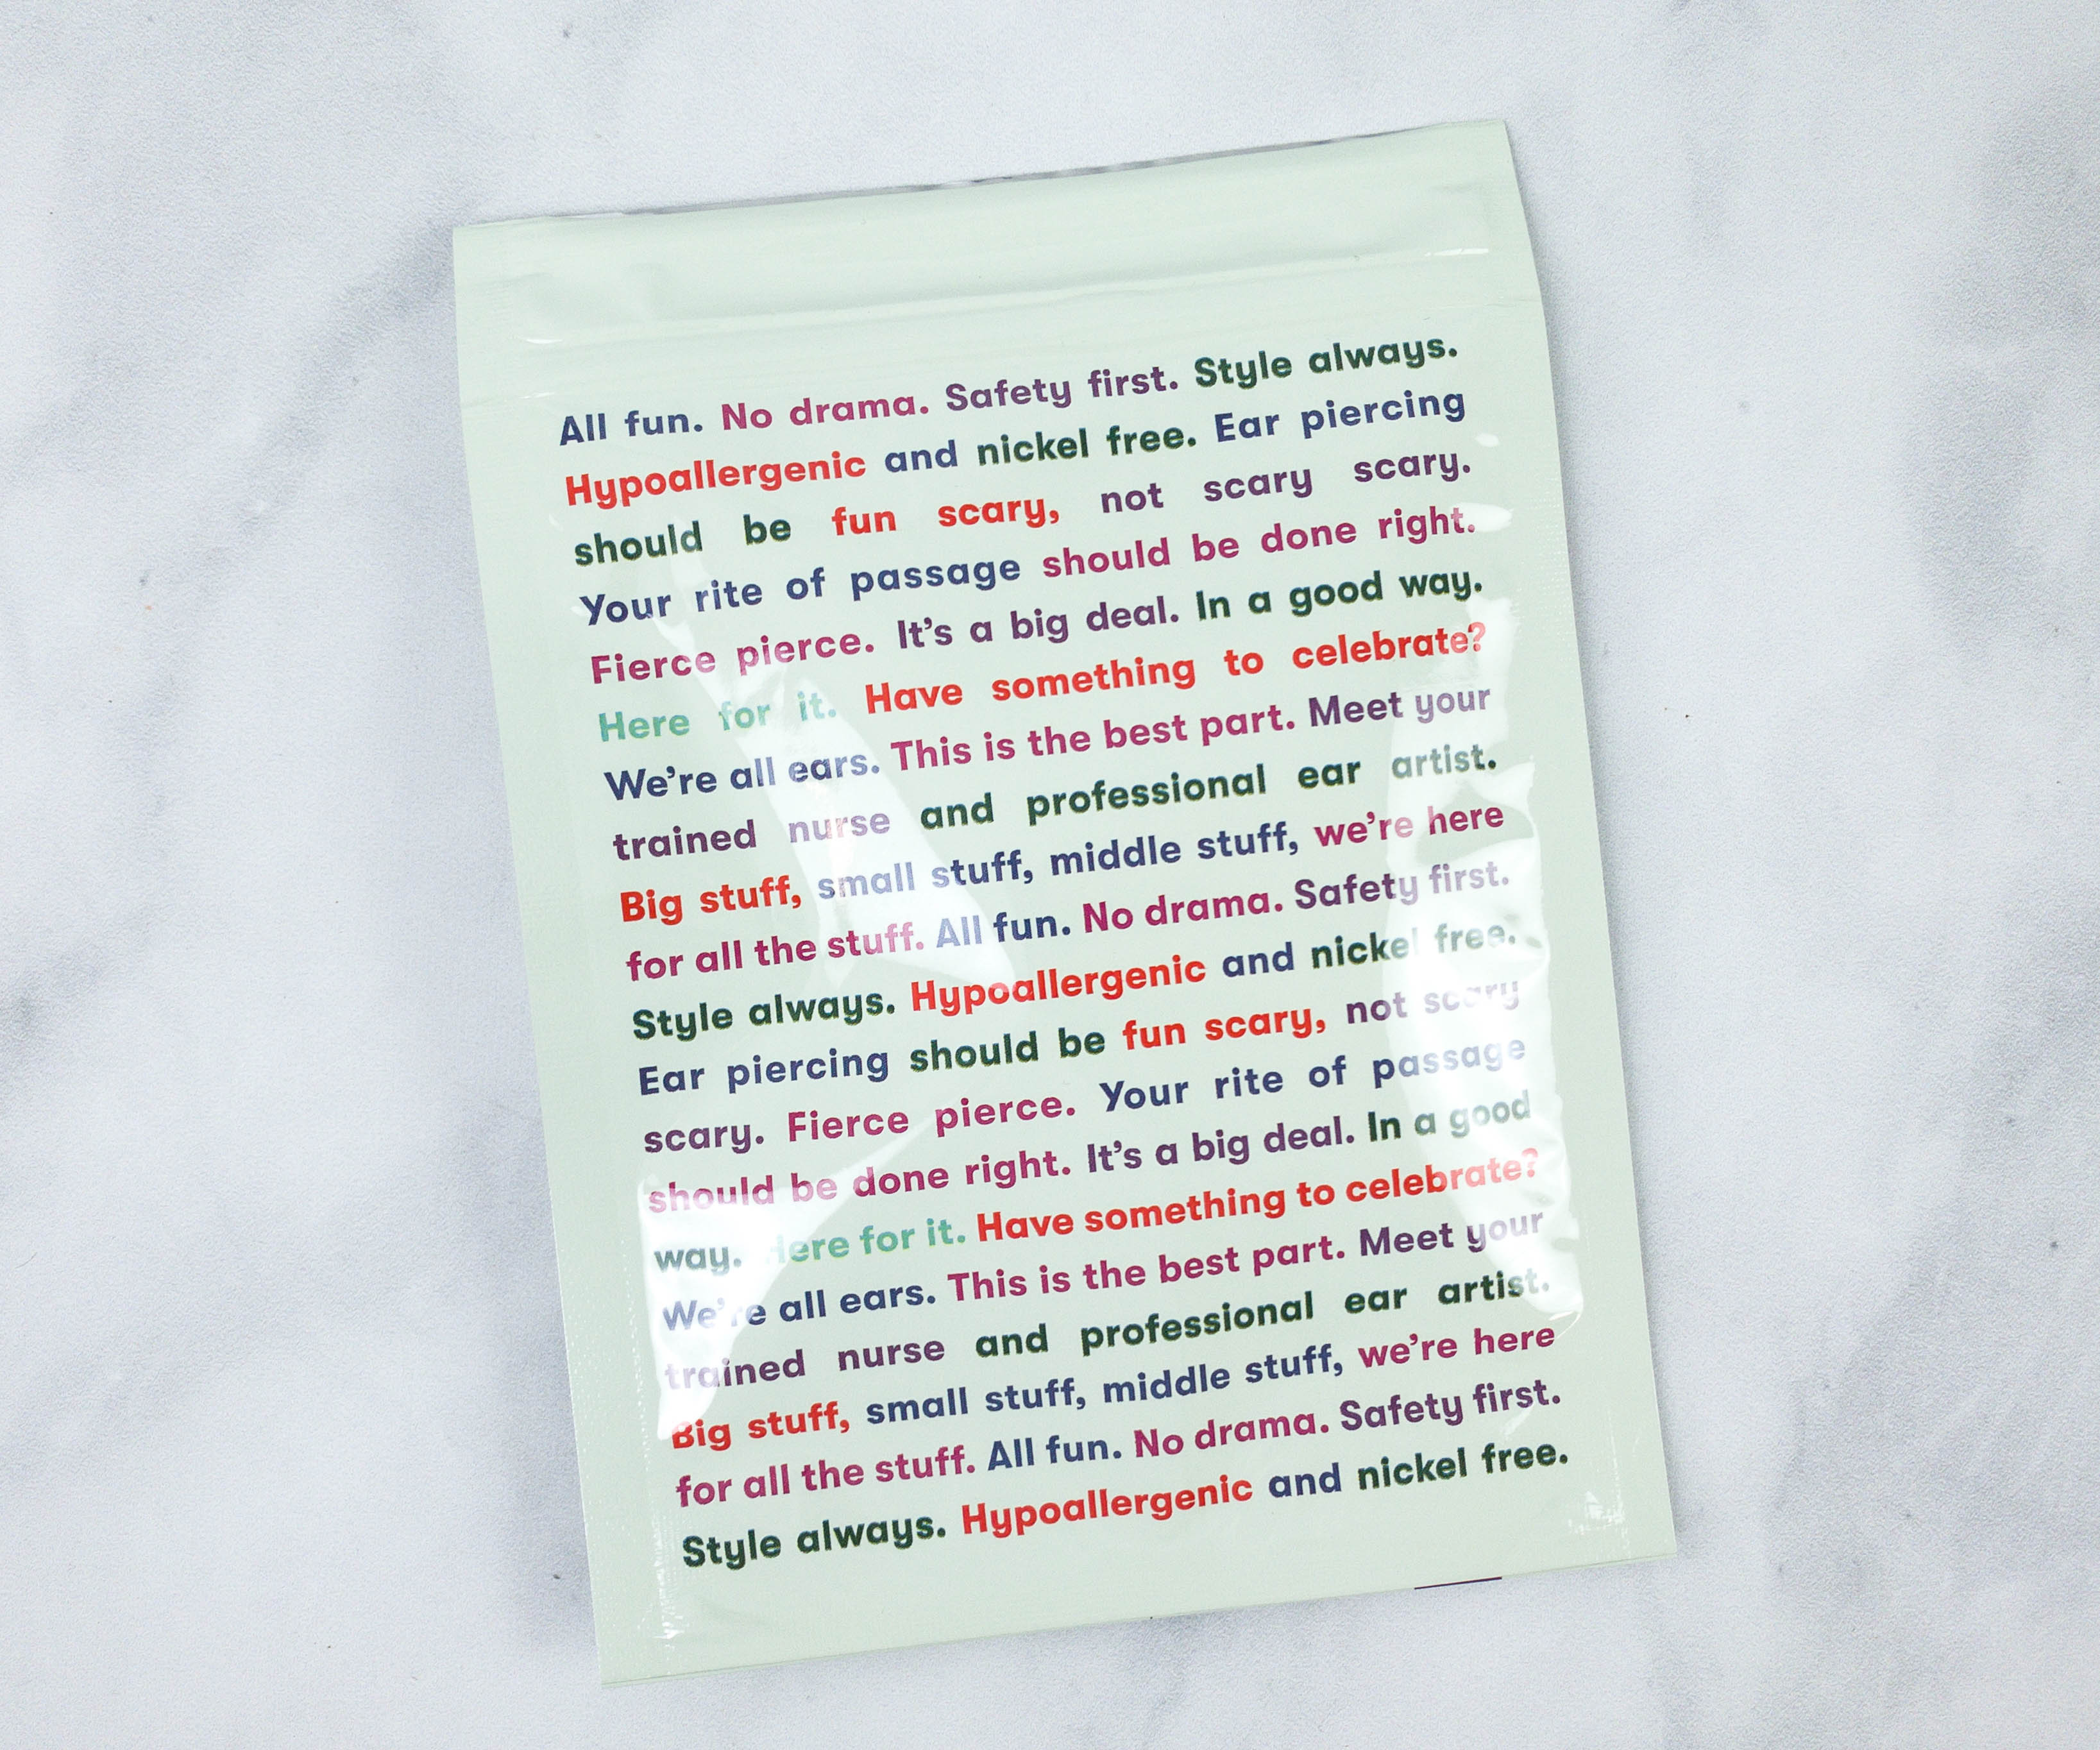 All fun. No drama. Safety first. Style always.
Hypoallergenic and nickel free. Ear piercing
should be fun scary, not scary scary.
Your rite of passage should be done right.
Fierce pierce. It's a big deal. In a good way.
Here for it. Have something to celebrate?
We're all ears. This is the best part. Meet your
trained nurse and professional ear artist.
Big stuff, small stuff, middle stuff, we're here
for all the stuff. All fun. No drama. Safety first.
Style always. Hypoallergenic and nickel free.
Ear piercing should be fun scary, not scary
scary. Fierce pierce. Your rite of passage
should be done right. It's a big deal. In a good
way. Here for it. Have something to celebrate?
We're all ears. This is the best part. Meet your
trained nurse and professional ear artist.
Big stuff, small stuff, middle stuff, we're here
for all the stuff. All fun. No drama. Safety first.
Style always. Hypoallergenic and nickel free.